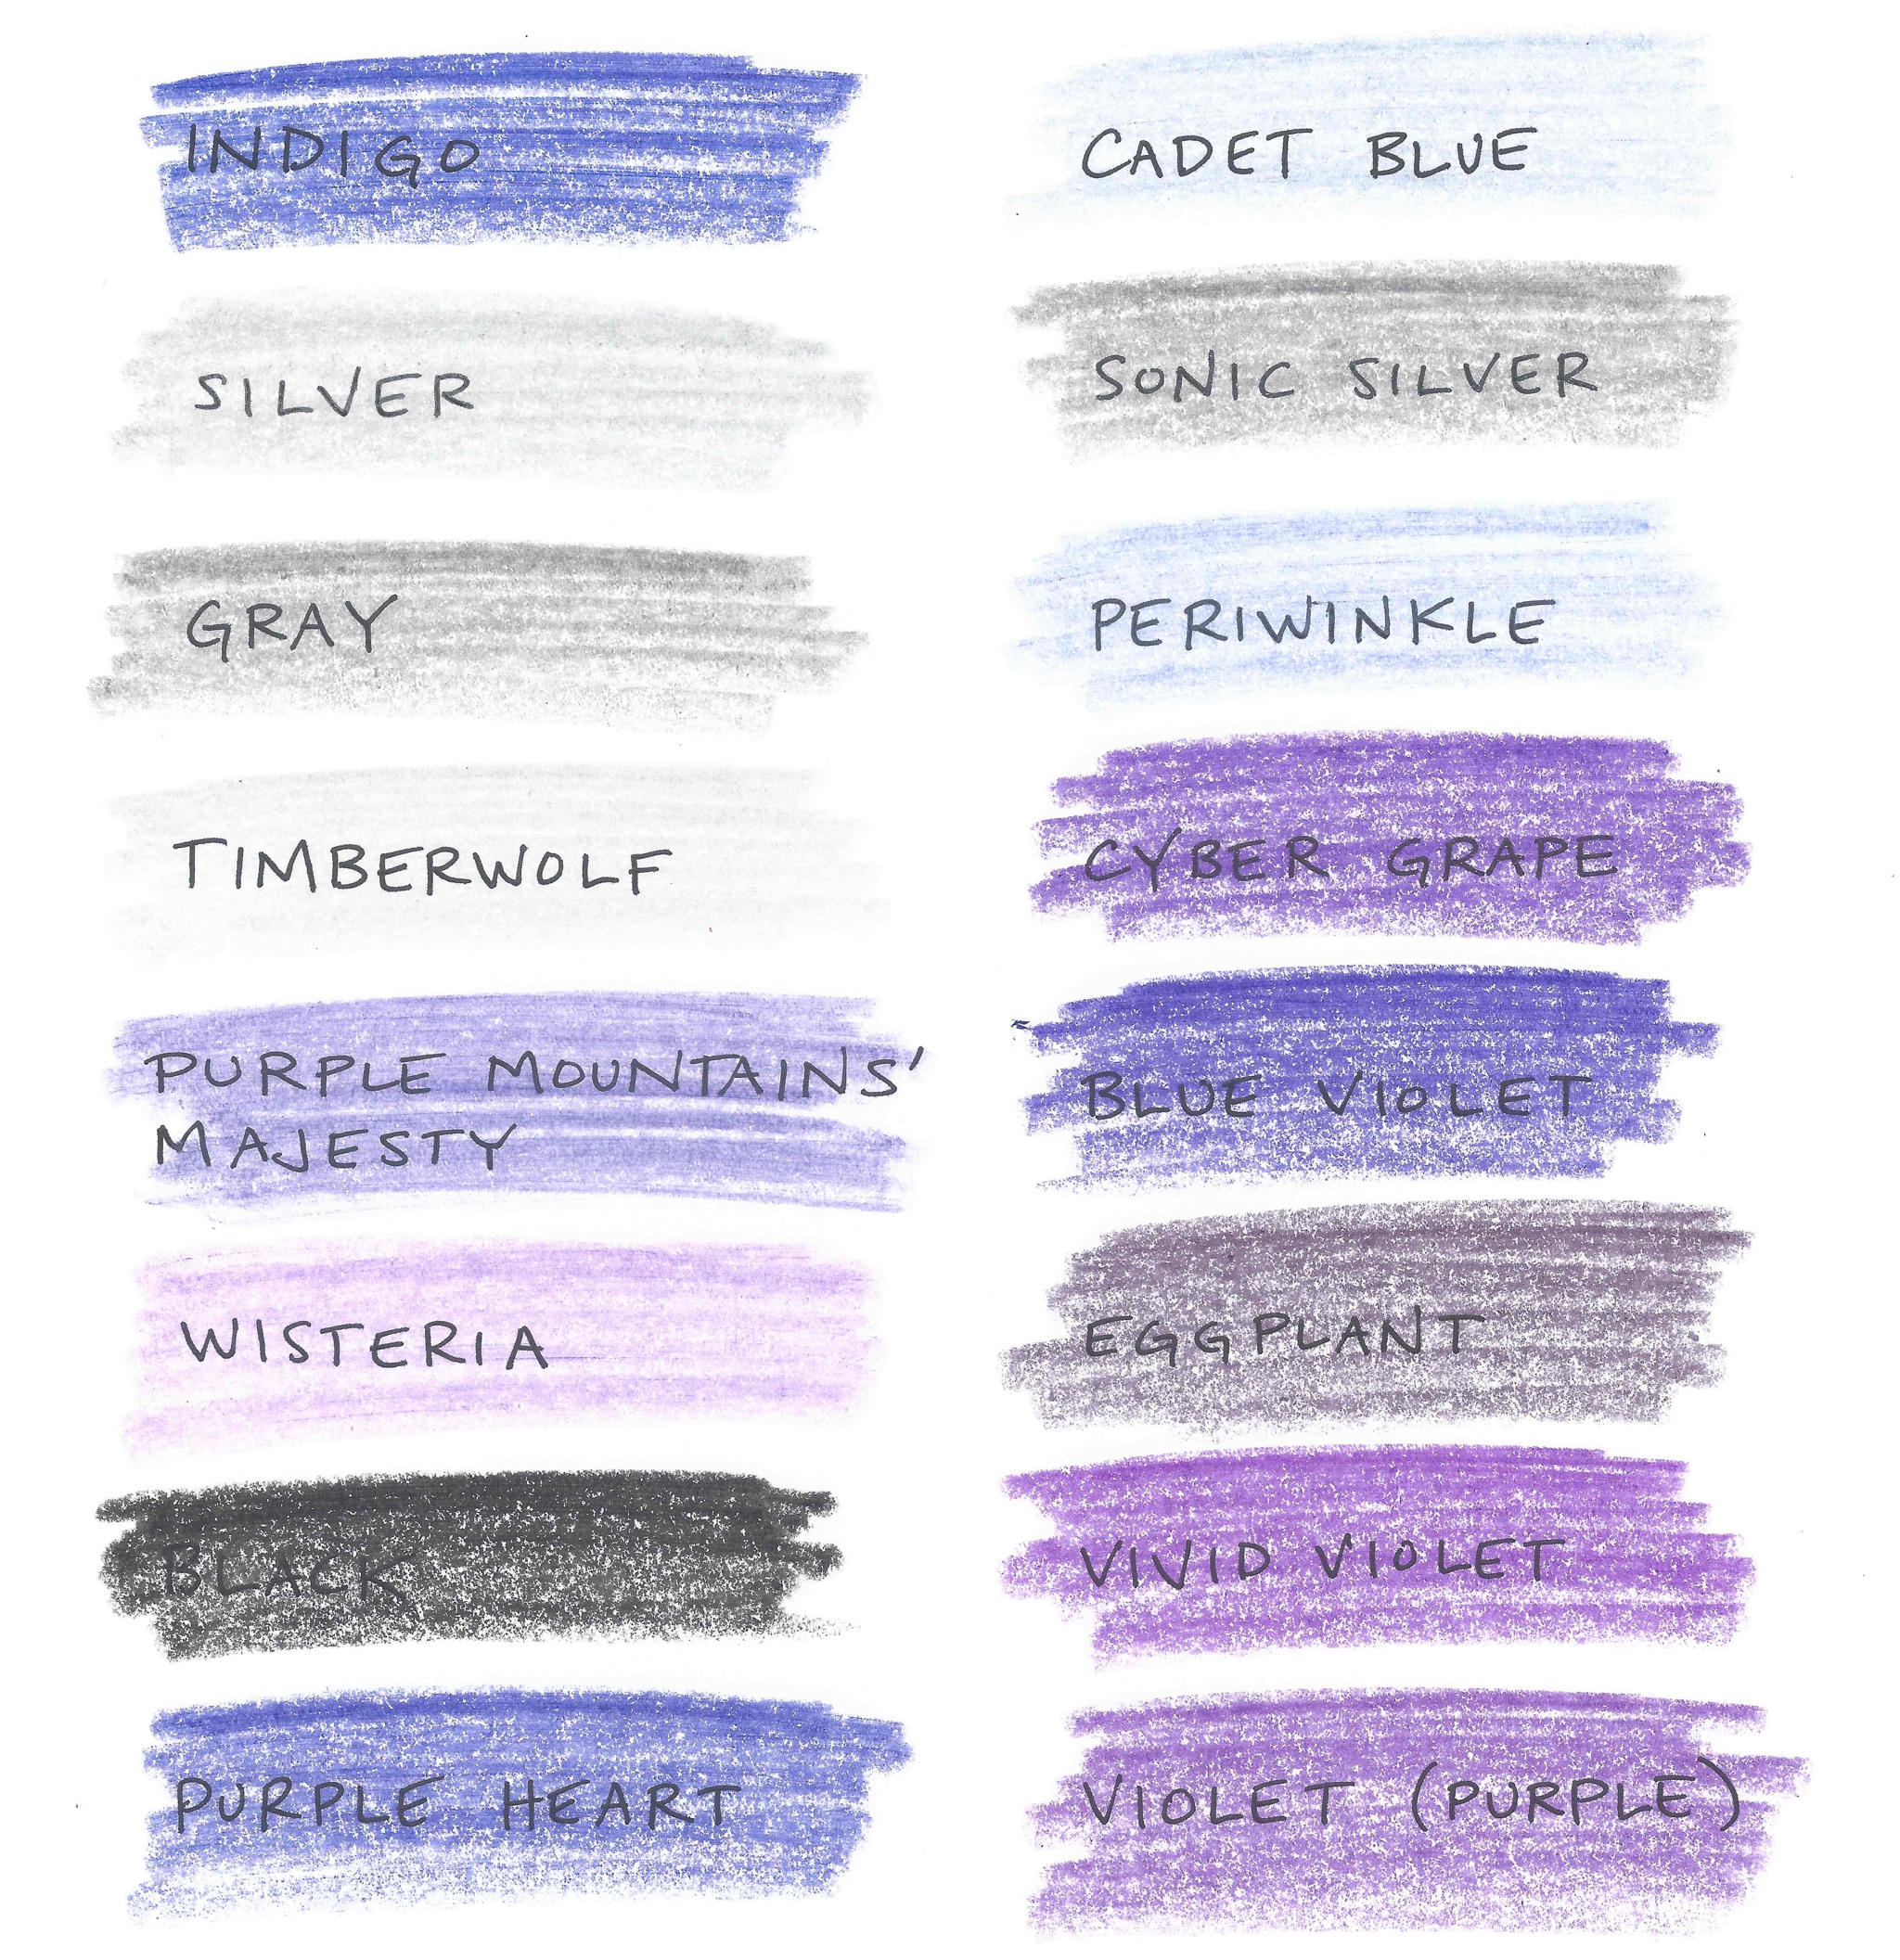 INDIGO
SILVER
GRAY
TIMBERWOLF
PURPLE MOUNTAINS'
MAJESTY
WISTERIA
BLACK
PURPLE HEART
CADET BLUE
SONIC SILVER
PERIWINKLE
CYBER GRAPE
BLUE VIOLET
EGGPLANT
VIVID VIOLET
VIOLET (PURPLE)